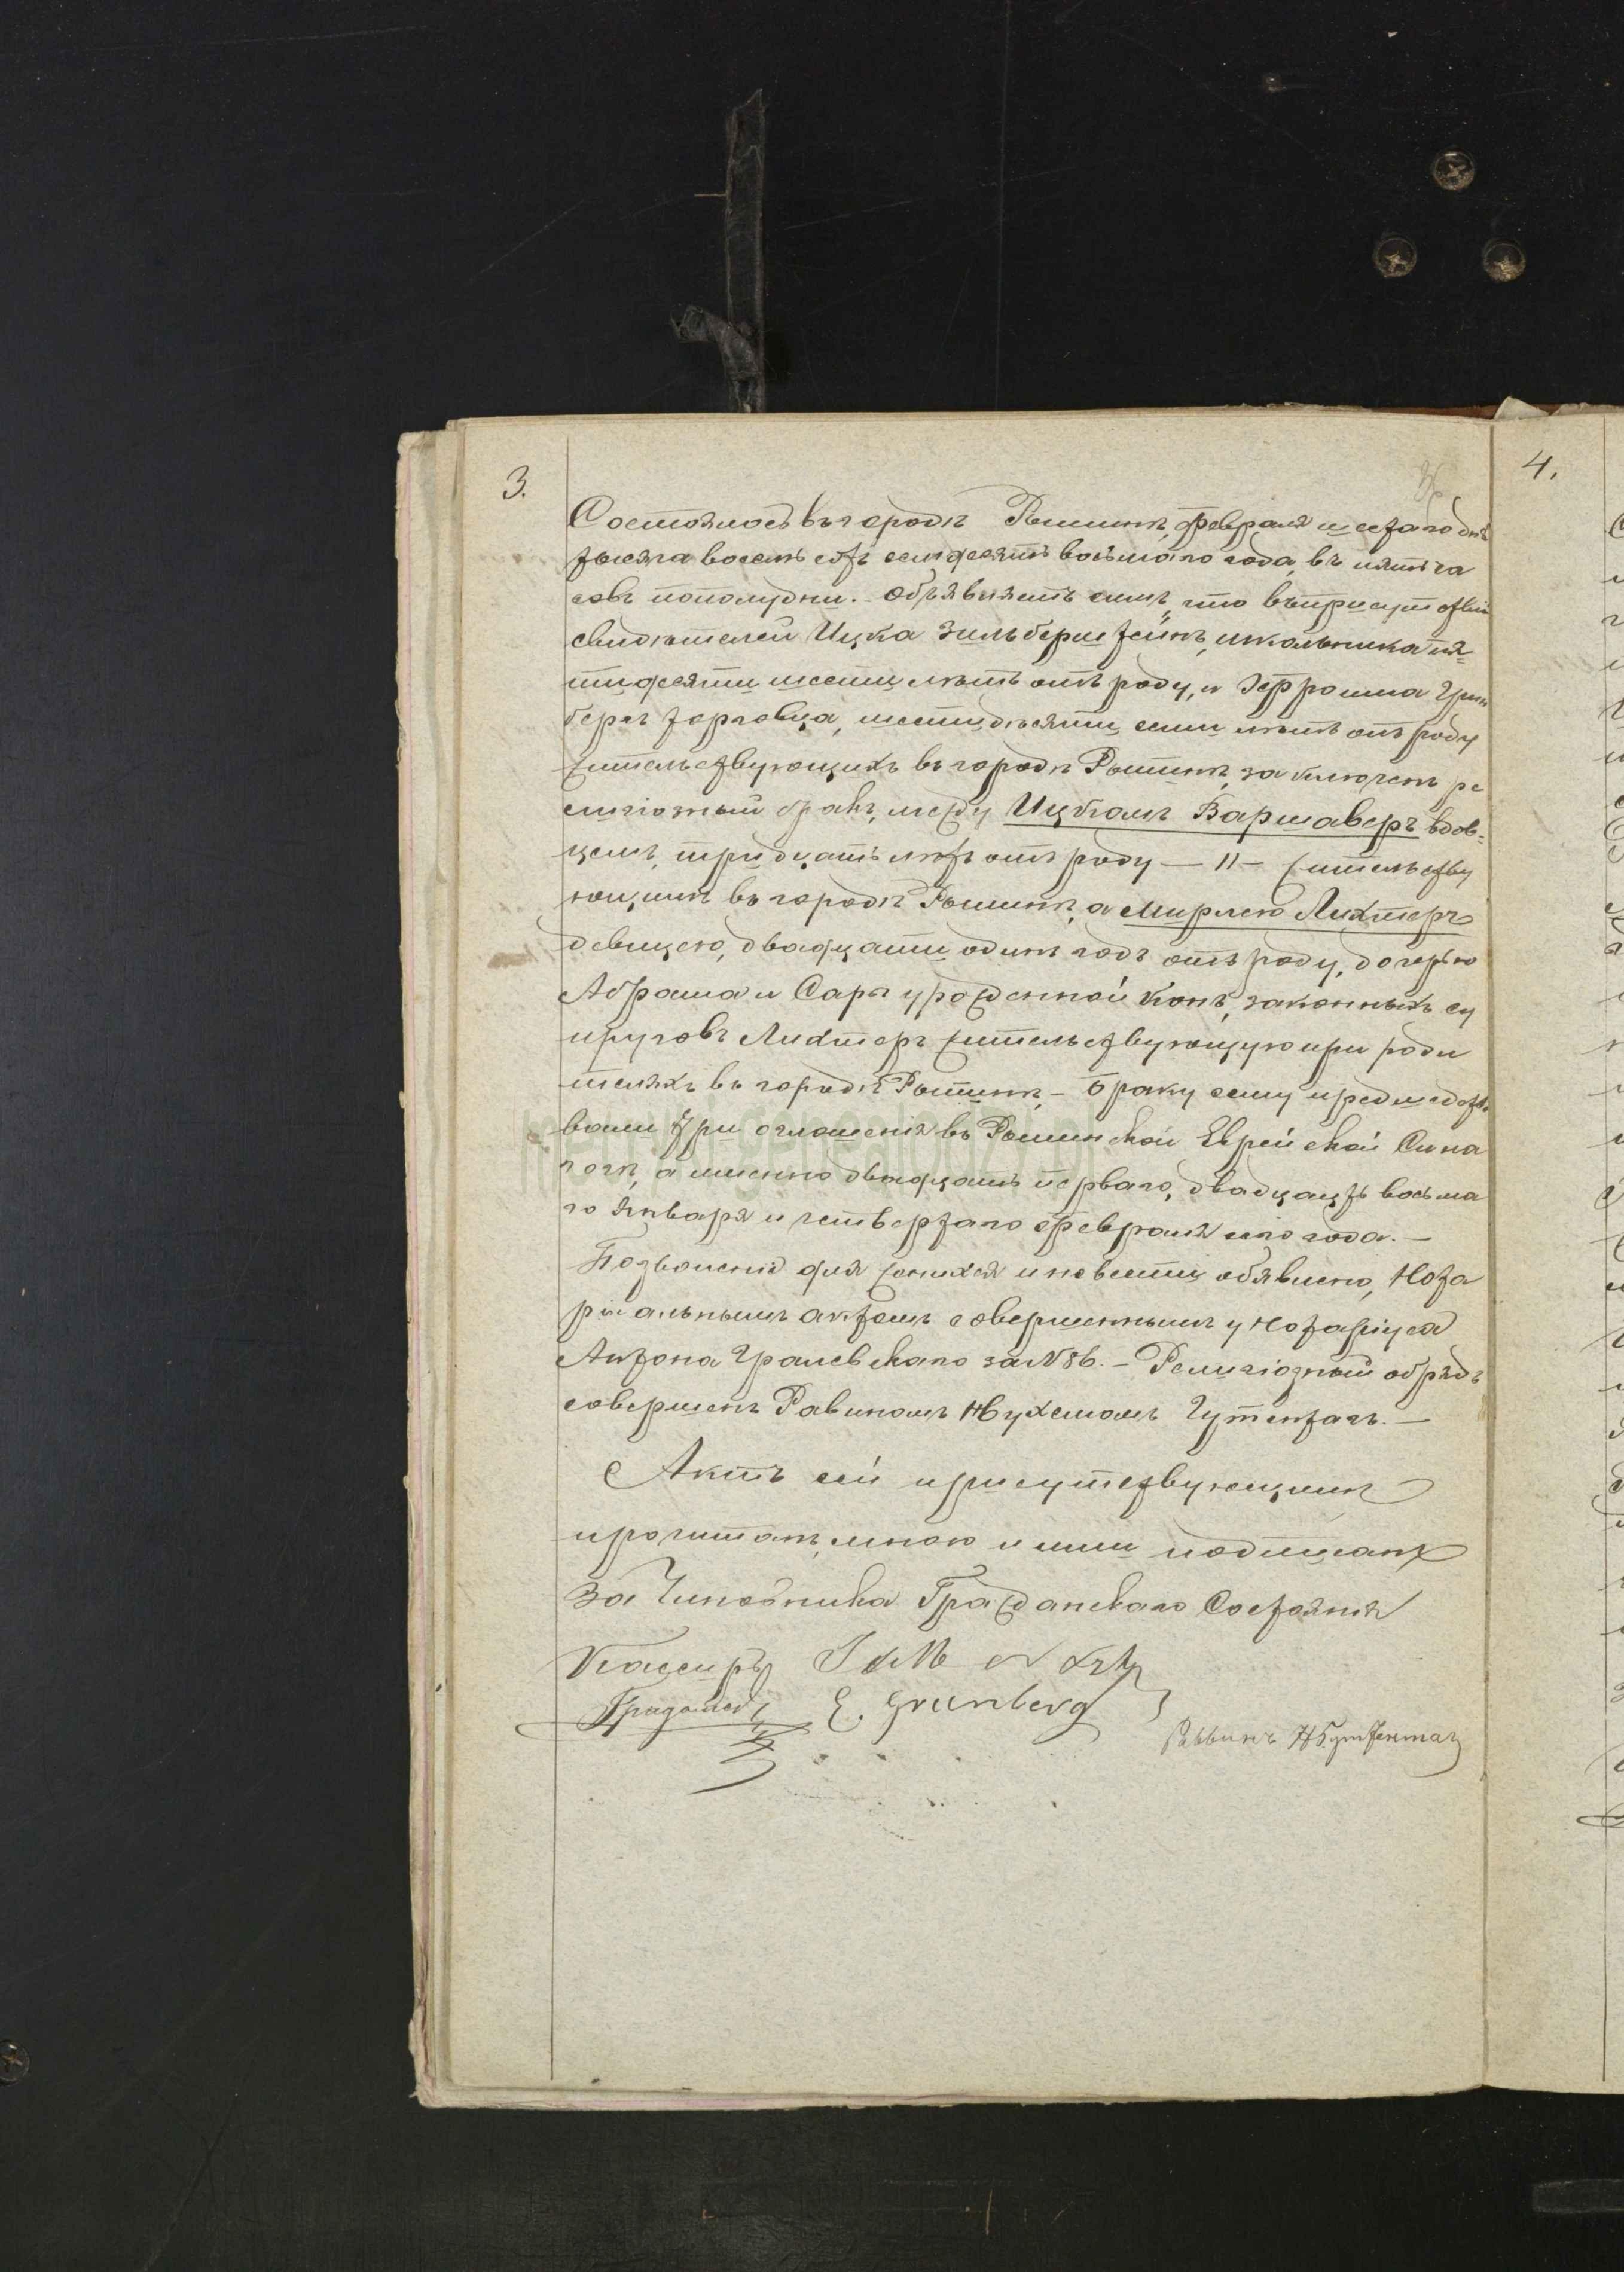 3.
4.
Состоялось въ городѣ Рыпинѣ, февраля шестаго дня
тысяча восемь сотъ семдесятъ восьмаго года, въ пять ча
совъ пополудни. Объявляетъ симъ, что въ присутствіи
свидѣтелей Ицка Зильберштейнъ, школьника пя-
тидесяти шести лѣтъ отъ роду, и Эфроима Грин
бергъ торговца, шестидѣсяти семи лѣтъ отъ роду
жительствующихъ въ городѣ Рыпинѣ, заключенъ ре
лигіозный бракъ, между Ицкомъ Варшаверъ вдов-
цемъ, тридцать лѣтъ отъ роду — 11 — жительству
ющимъ въ городѣ Рыпинѣ, а Мирлею Лихтеръ
девицею, двадцати одинъ годъ отъ роду, дочерью
Абрама и Сары урожденной Конъ, законныхъ су
пруговъ Лихтеръ жительствующую при роди
теляхъ въ городѣ Рыпинѣ, - Браку сему предшедство
вали три оглашенія въ Рыпинской Еврейской Сина
гогѣ, а именно двадцать перваго, двадцать восьма
го Января и четвертаго Февраля сего года. —
Позволеніе для жениха и невесты обявлено, Нота
ріальнымъ актомъ совершеннымъ у Нотаріуса
Антона Гралевскаго за № 86. - Религіозный обрядъ
совершенъ Равиномъ Нухемомъ Гутентагъ. —
Актъ сей присутствующимъ
прочитанъ, мною и ими подписанъ
За Чиновника Гражданскаго Состоянія
Кассиръ
E. Grunberg
Раввинъ Н Гутентагъ